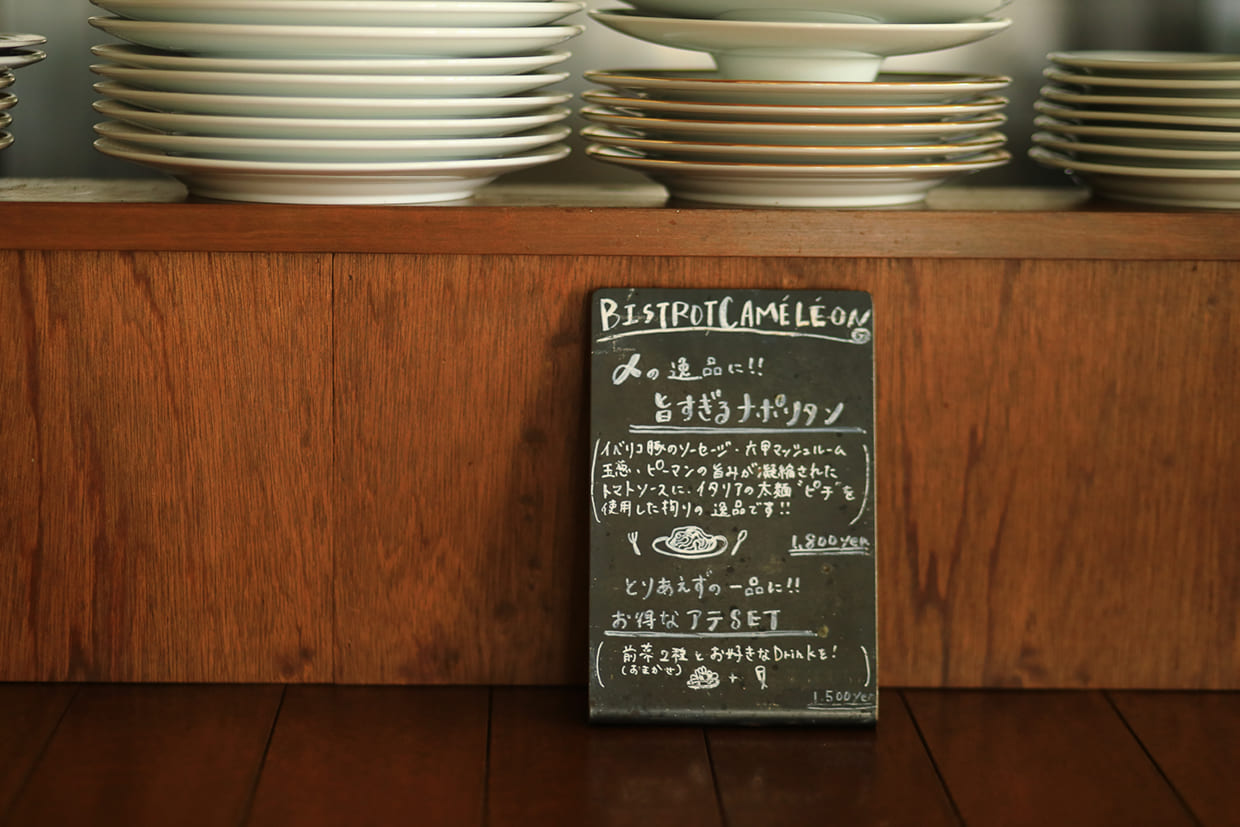 BISTROT CAMÉLÉON
〆の逸品に!!
旨すぎるナポリタン
(イバリコ豚のソーセージ・六甲マッシュルーム
玉葱・ピーマンの旨みが凝縮された
トマトソースに、イタリアの太麺"ピチ"を
使用した拘りの逸品です!!)
1,800yen
とりあえずの一品に!!
お得なアテSET
(前菜2種とお好きなDrinkを!
(おまかせ) +)
1,500yen